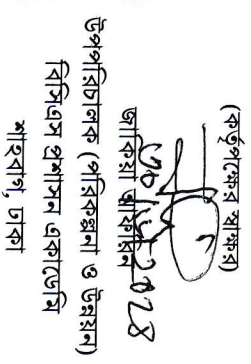 (কর্তৃপক্ষের স্বাক্ষর)
জাকিয়া
উপপরিচালক (পরিকল্পনা ও উন্নয়ন)
বিসিএস প্রশাসন একাডেমি
শাহবাগ, ঢাকা